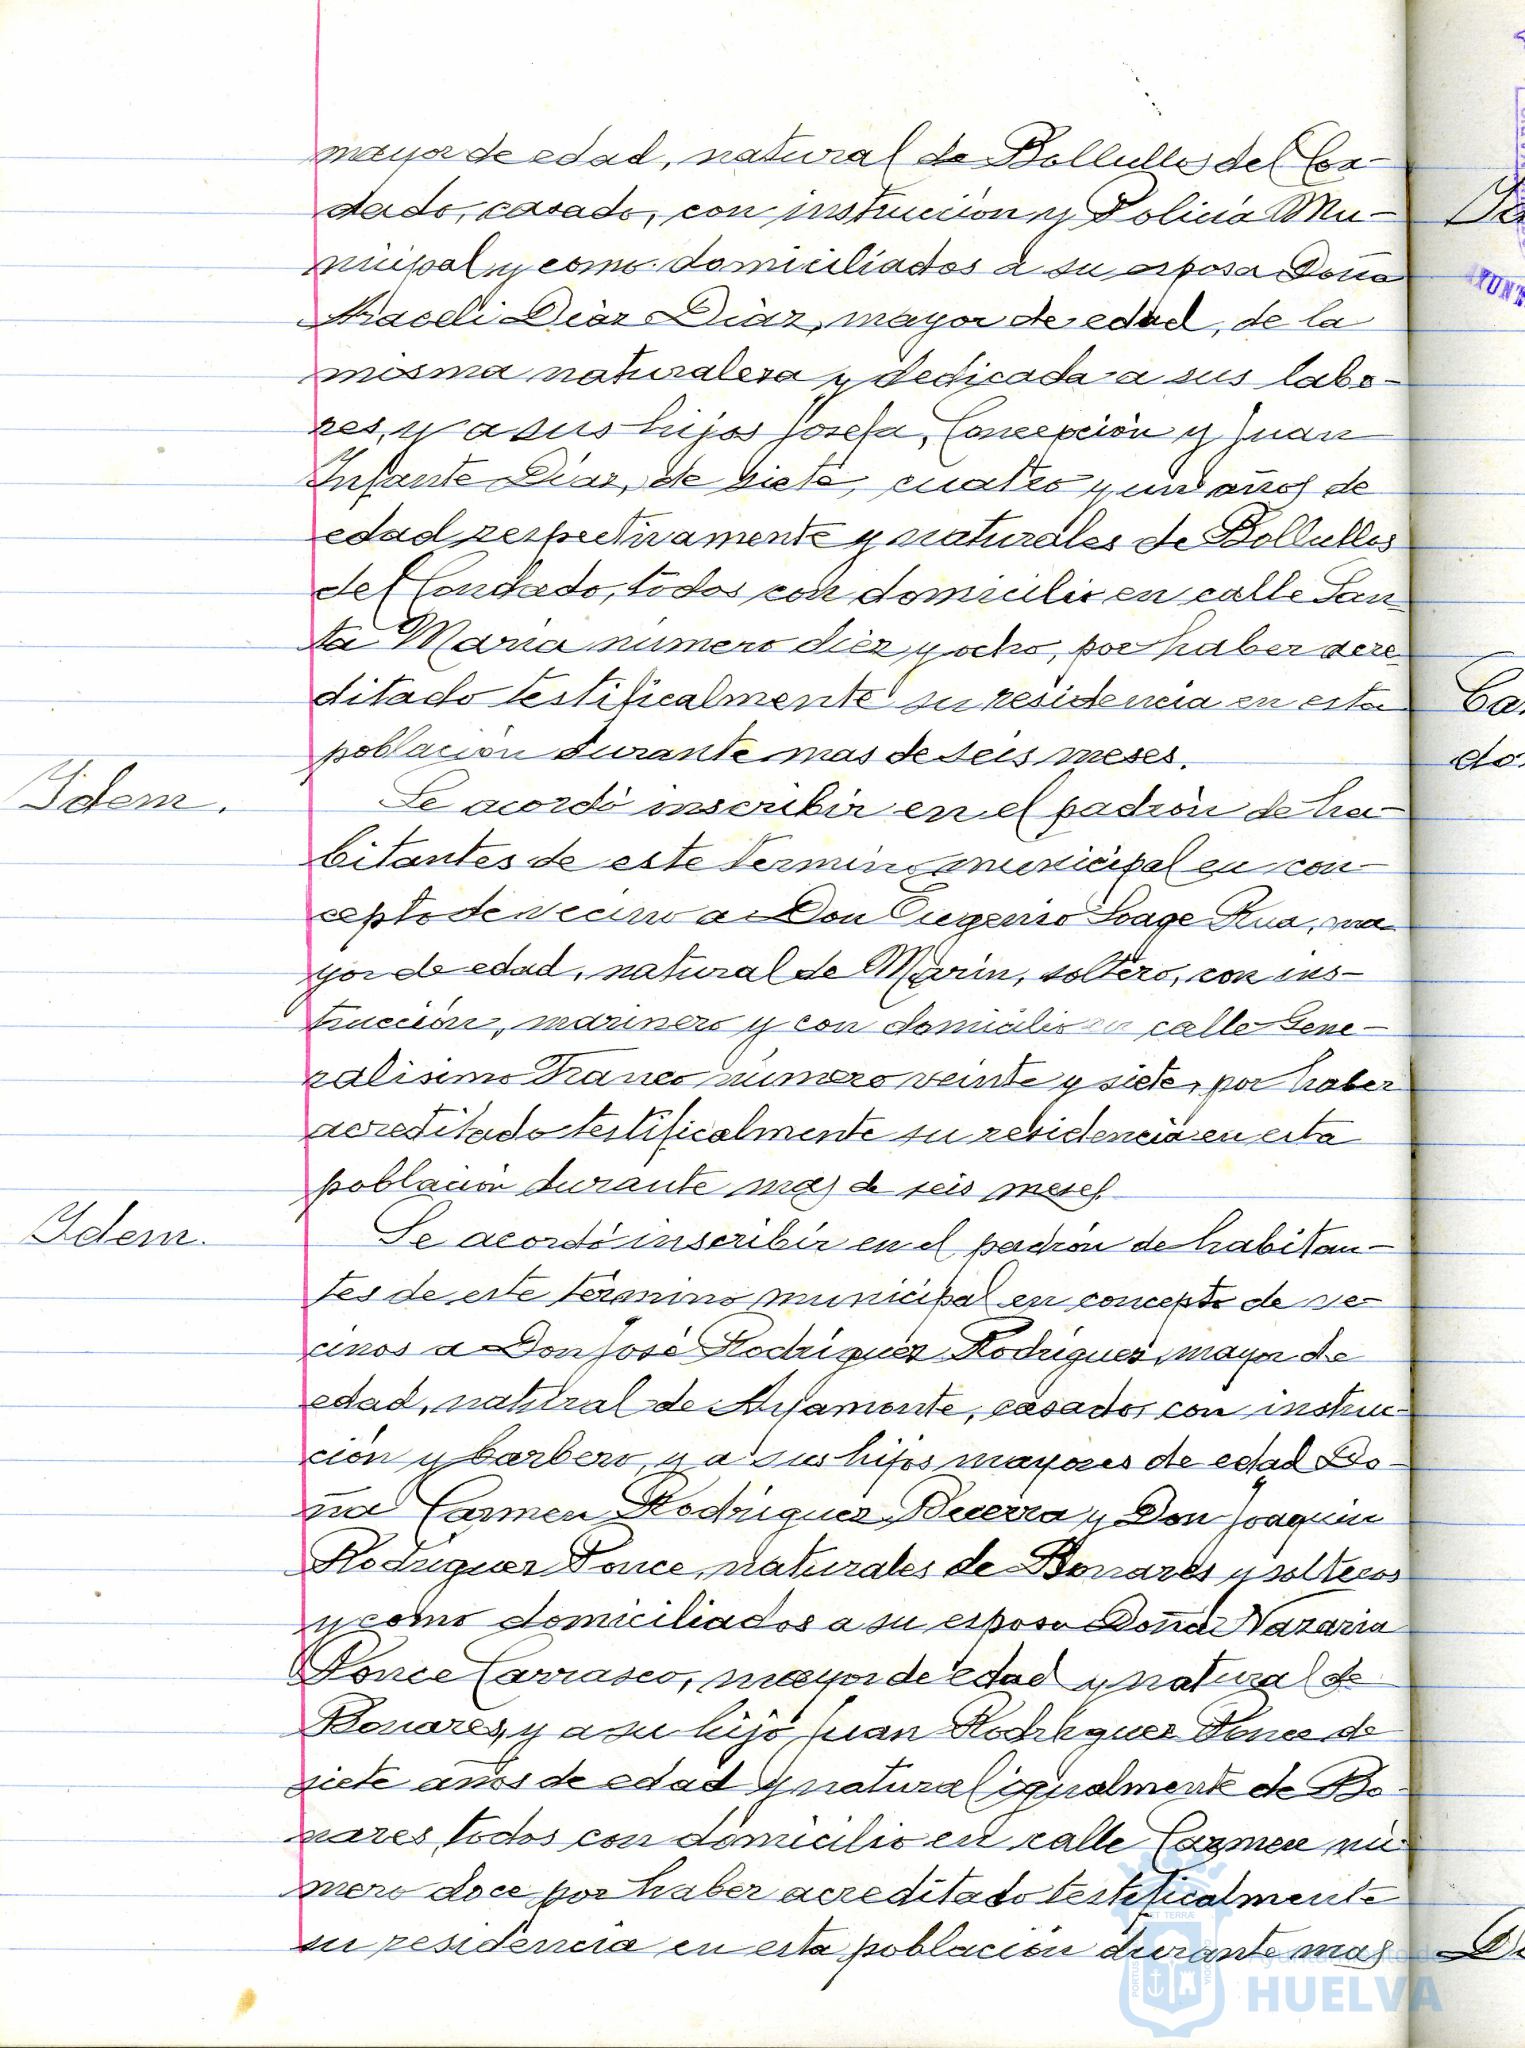 mayor de edad, natural de Bollullos del Con-
dado, casado, con instrucción y Policia Mu-
nicipal y como domiciliados a su esposa Doña
Araceli Diaz Diaz, mayor de edad, de la
misma naturaleza y dedicada a sus labo-
res, y a sus hijos Josefa, Concepción y Juan
Infante Diaz, de siete, cuatro y un años de
edad respectivamente y naturales de Bollullos
del Condado, todos con domicilio en calle San
ta Maria número diez y ocho, por haber acre
ditado testificalmente su residencia en esta
población durante mas de seis meses.
Idem.
Se acordó inscribir en el padrón de ha-
bitantes de este termino municipal en con-
cepto de vecino a Don Eugenio Soage Rua, ma
yor de edad, natural de Marin, soltero, con ins-
trucción, marinero y con domicilio en calle Gene-
ralisimo Franco número veinte y siete, por haber
acreditado testificalmente su residencia en esta
población durante mas de seis meses
Idem.
Se acordó inscribir en el padrón de habitan-
tes de este término municipal en concepto de ve-
cinos a Don José Rodriguez Rodriguez, mayor de
edad, natural de Ayamonte, casado, con instruc-
ción y barbero, y a sus hijos mayores de edad Do-
ña Carmen Rodriguez Becerra y Don Joaquin
Rodriguez Ponce, naturales de Bonares y solteros
y como domiciliados a su esposa Doña Nazaria
Ponce Carrasco, mayor de edad y natural de
Bonares, y a su hijo Juan Rodriguez Ponce de
siete años de edad y natural igualmente de Bo-
nares, todos con domicilio en calle Carmen nú-
mero doce por haber acreditado testificalmente
su residencia en esta población durante mas
Ayuntamiento de
HUELVA
AYUNT